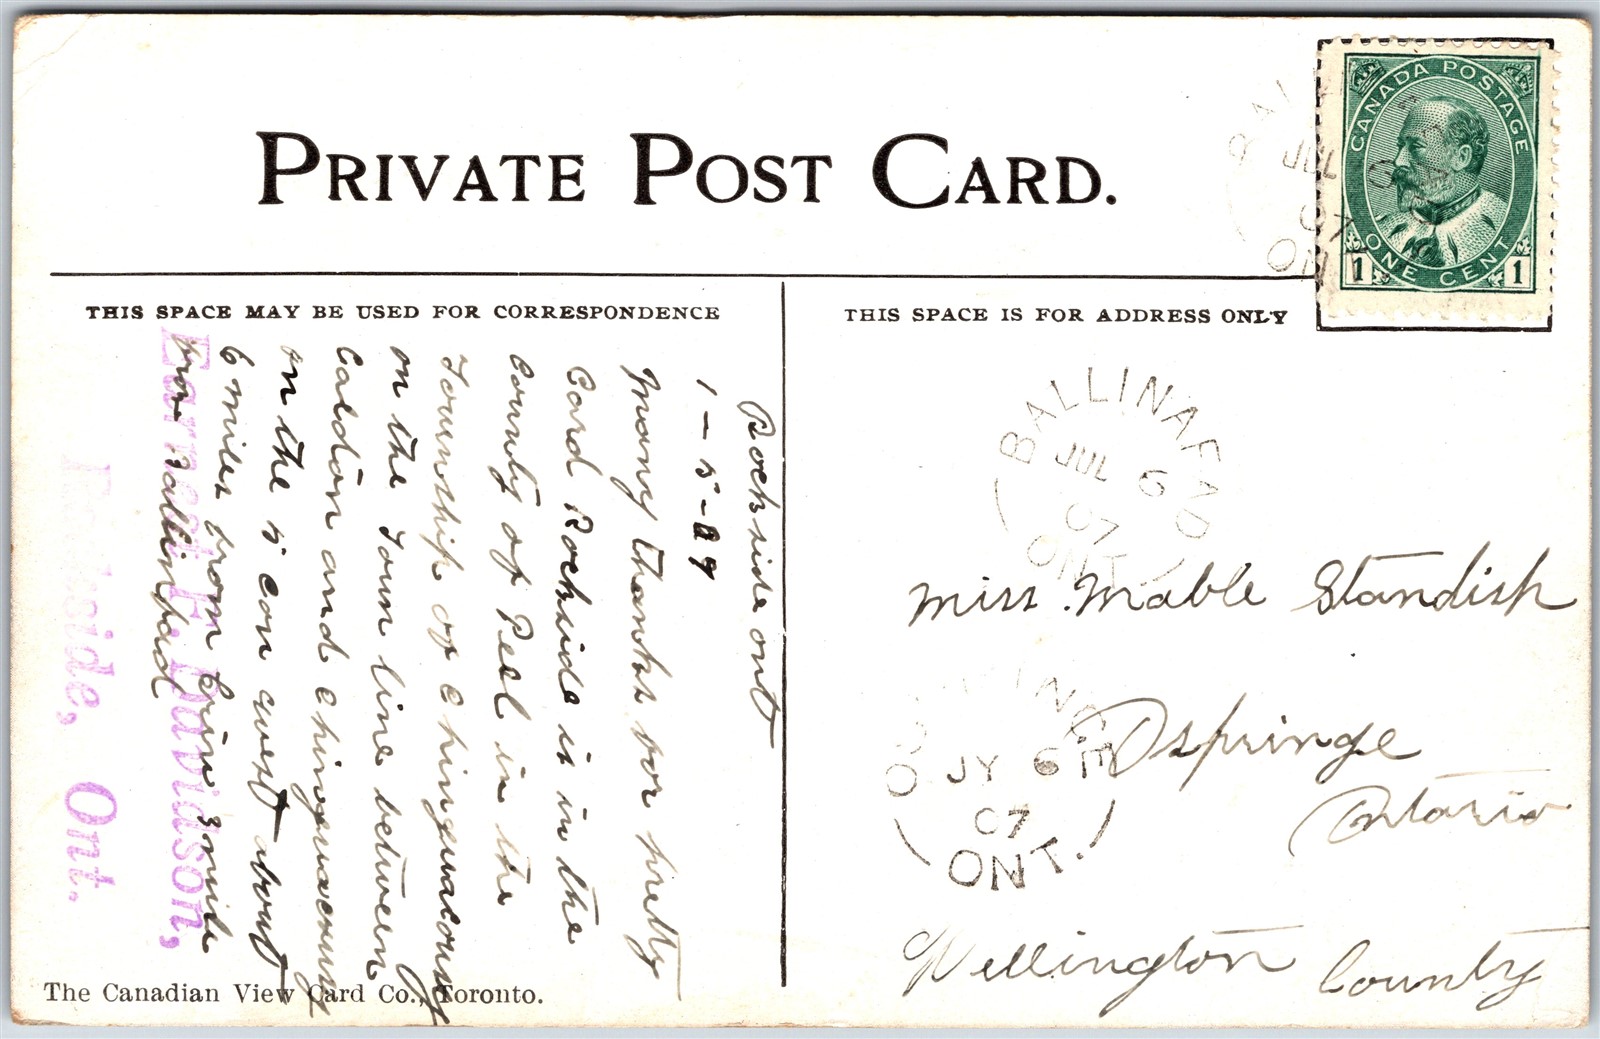 PRIVATE POST CARD.
THIS SPACE MAY BE USED FOR CORRESPONDENCE
THIS SPACE IS FOR ADDRESS ONLY
CANADA POSTAGE
ONE CENT
1 1
BALL
JUL
07
ON
BALLINAFAD
JUL 6
07
ONT.
OSPRINGE
JY 6
07
ONT.
Rockside ont
1-5-
Many thanks for pretty
Card Rockside is in the
County of Peel in the
Township of Chinguacousy
on the Town line between
Caledon and Chinguacousy
on the 5 con west about
6 miles from Erin 3 mile
from Ballinafad
Earnest F. Davidson,
Rockside, Ont.
Miss Mable Standish
Ospringe
Ontario
Wellington County
The Canadian View Card Co., Toronto.